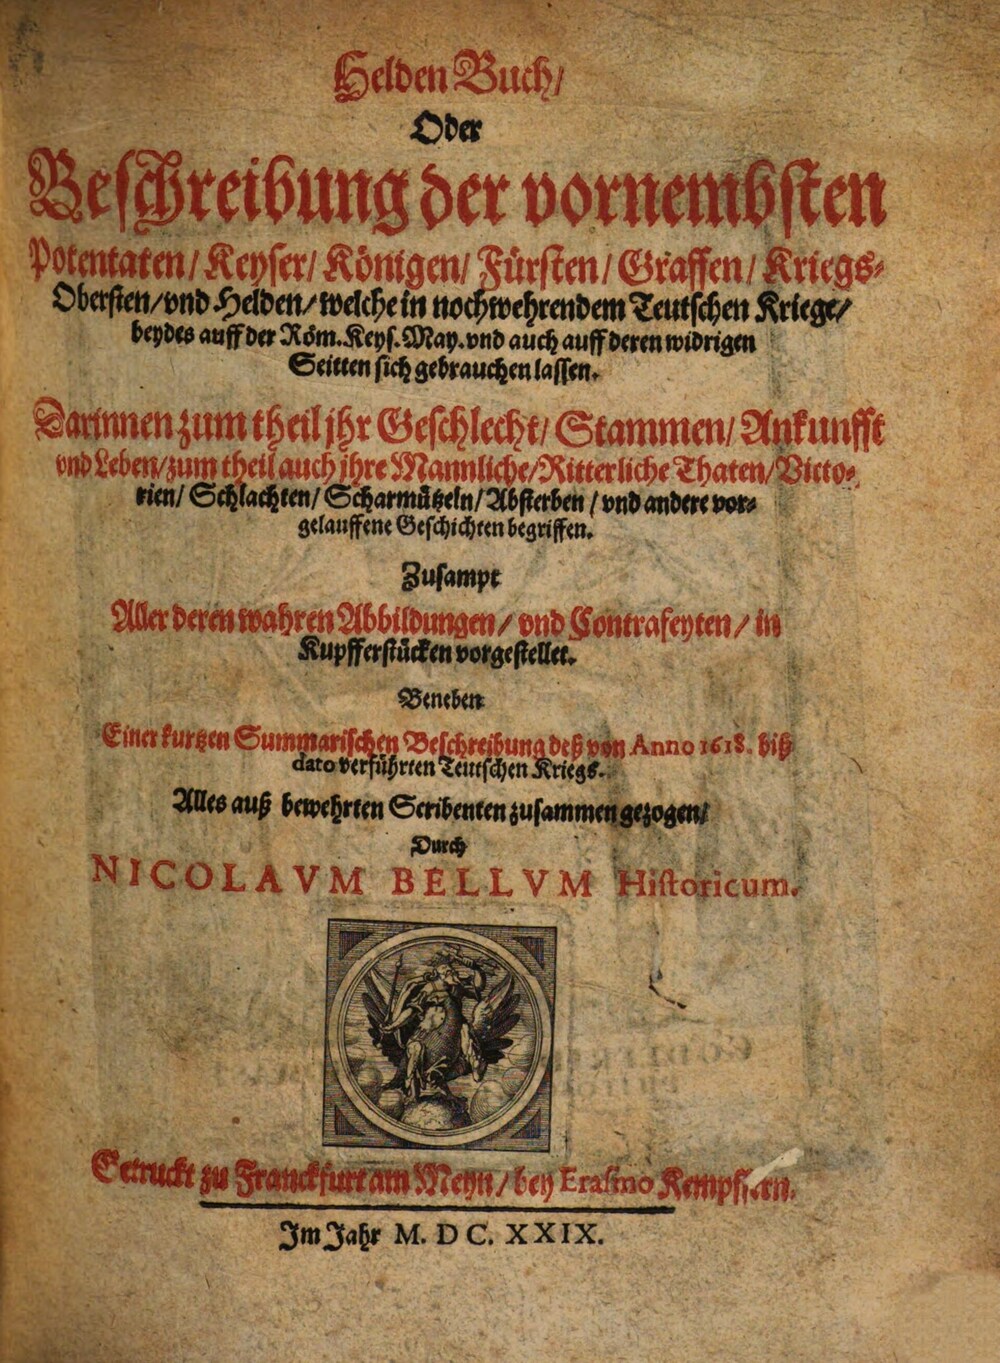 Helden Buch/
Oder
Beschreibung der vornembsten
Potentaten/ Keyser/ Königen/ Fürsten/ Graffen/ Kriegs-
Obersten/ vnd Helden/ welche in nochwehrendem Teutschen Kriege/
beydes auff der Röm. Keys. May. vnd auch auff deren widrigen
Seitten sich gebrauchen lassen.
Darinnen zum theil jhr Geschlecht/ Stammen/ Ankunfft
vnd Leben/ zum theil auch jhre Mannliche/ Ritterliche Thaten/ Victo-
rien/ Schlachten/ Scharmützeln/ Absterben/ vnd andere vor-
gelauffene Geschichten begriffen.
Zusampt
Aller deren wahren Abbildungen/ vnd Contrafeyten/ in
Kupfferstücken vorgestellet.
Beneben
Einer kurtzen Summarischen Beschreibung deß von Anno 1618. biß
dato verführten Teutschen Kriegs.
Alles auß bewehrten Scribenten zusammen gezogen/
Durch
NICOLAVM BELLVM Historicum.
Getruckt zu Franckfurt am Meyn/ bey Erasmo
Im Jahr M. DC. XXIX.